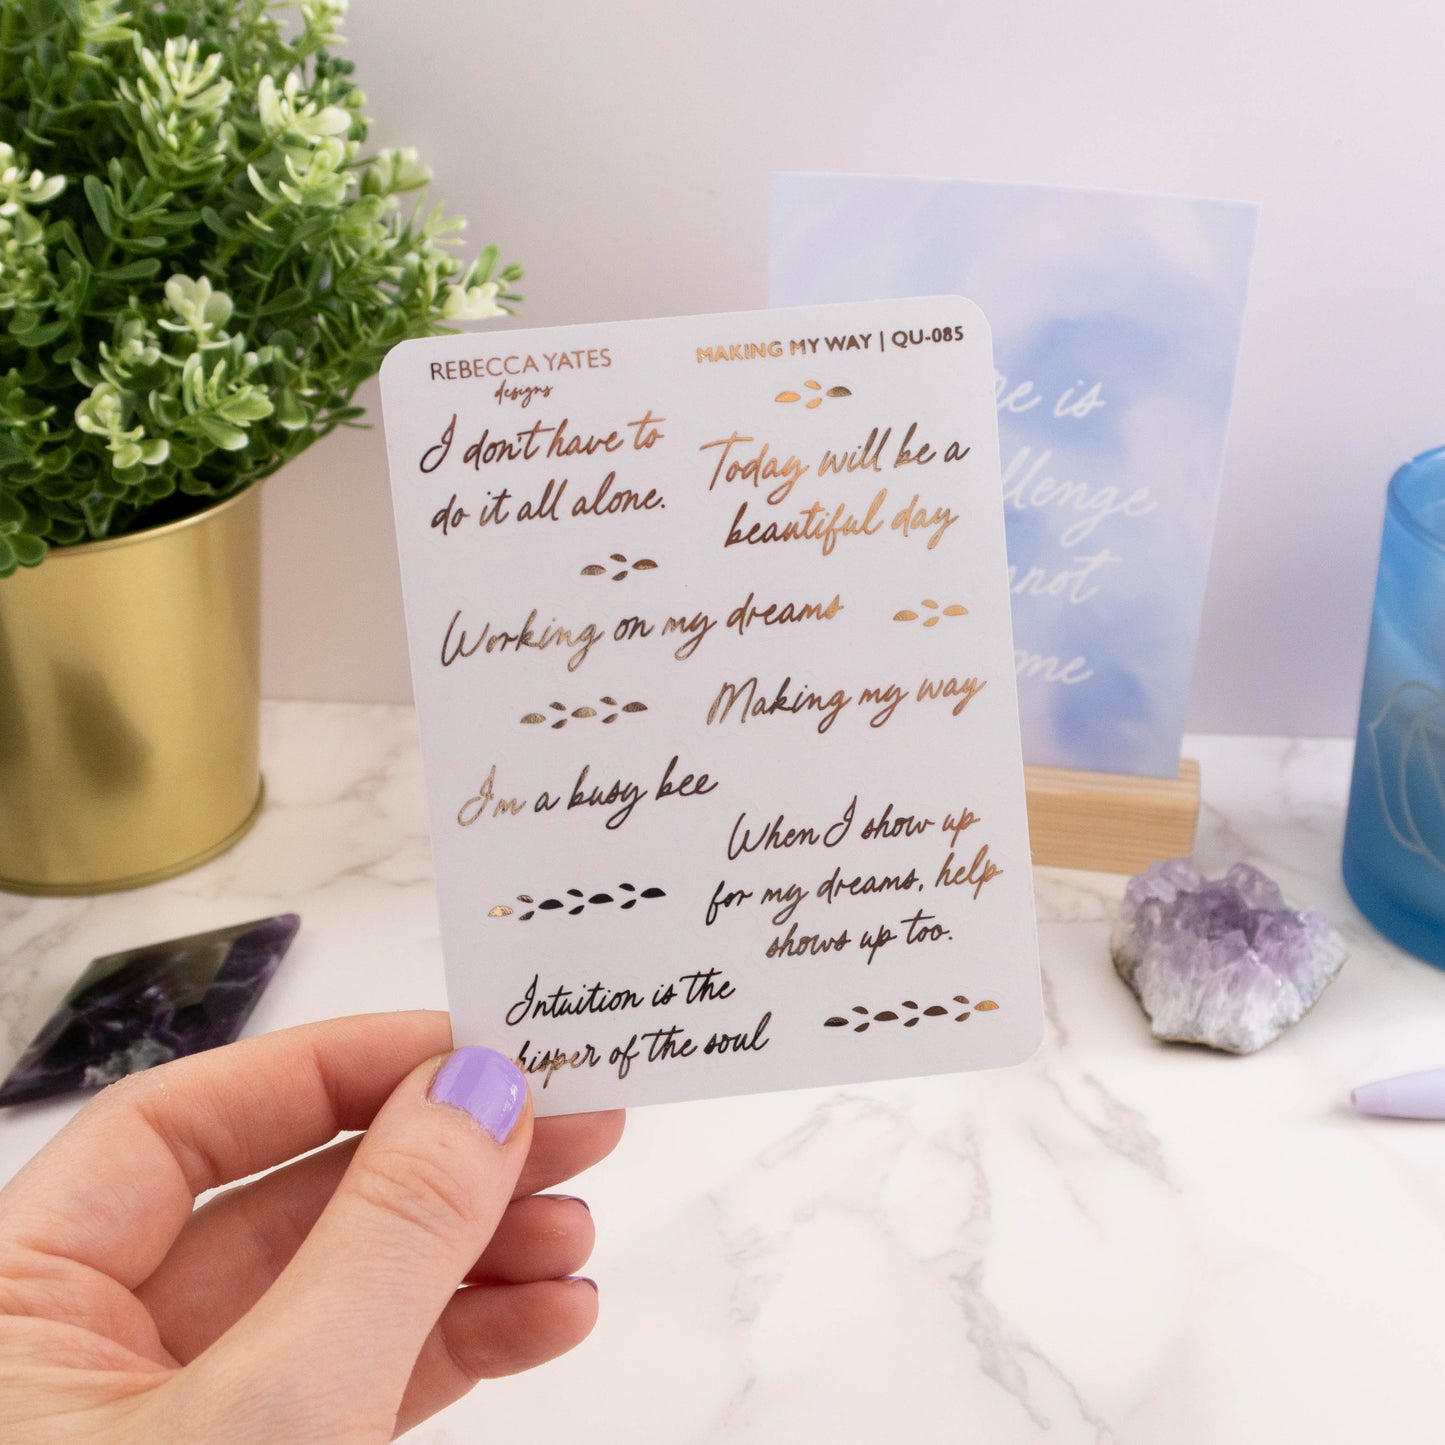 REBECCA YATES
designs
MAKING MY WAY | QU-085
I don't have to
do it all alone.
Today will be a
beautiful day
Working on my dreams
Making my way
I'm a busy bee
When I show up
for my dreams, help
shows up too.
Intuition is the
of the soul
is